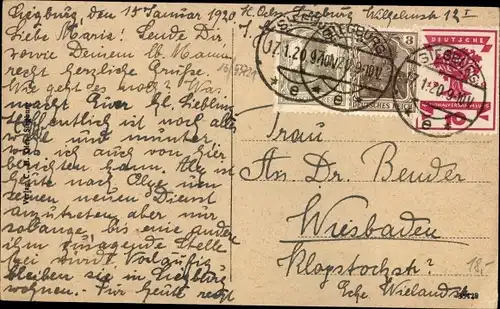 Siegburg, den 15 Januar 1920, H. Oelm Siegburg Wilhelmstr 12 I
Liebe Maria! Sende Dir
sowie Deinem lb. Mann
recht herzliche Grüße.
Wie geht es noch? Was
macht Euer lb. Liebling
Hoffentlich ist noch alles
wohl und munter
was ich auch von hier
berichten kann. Alex ist
heute nach
neuen Dienst
anzutreten aber nur
solange bis eine andere
ihm zusagende Stelle
bei wird Vorläufig
bleiben sie in Siegburg
wohnen. Für heute recht
SIEGBURG
17.1.20.9-10V.
* e
SIEGBURG
17.1.20.9-10V.
* e
SIEGBURG
17.1.20.9-10V.
* e
3
DEUTSCHES REICH
DEUTSCHE
NATIONALVERSAMMLUNG
10
Frau
An. Dr. Bender
Wiesbaden
Klopstockstr.
Ecke Wielandstr.
18,-